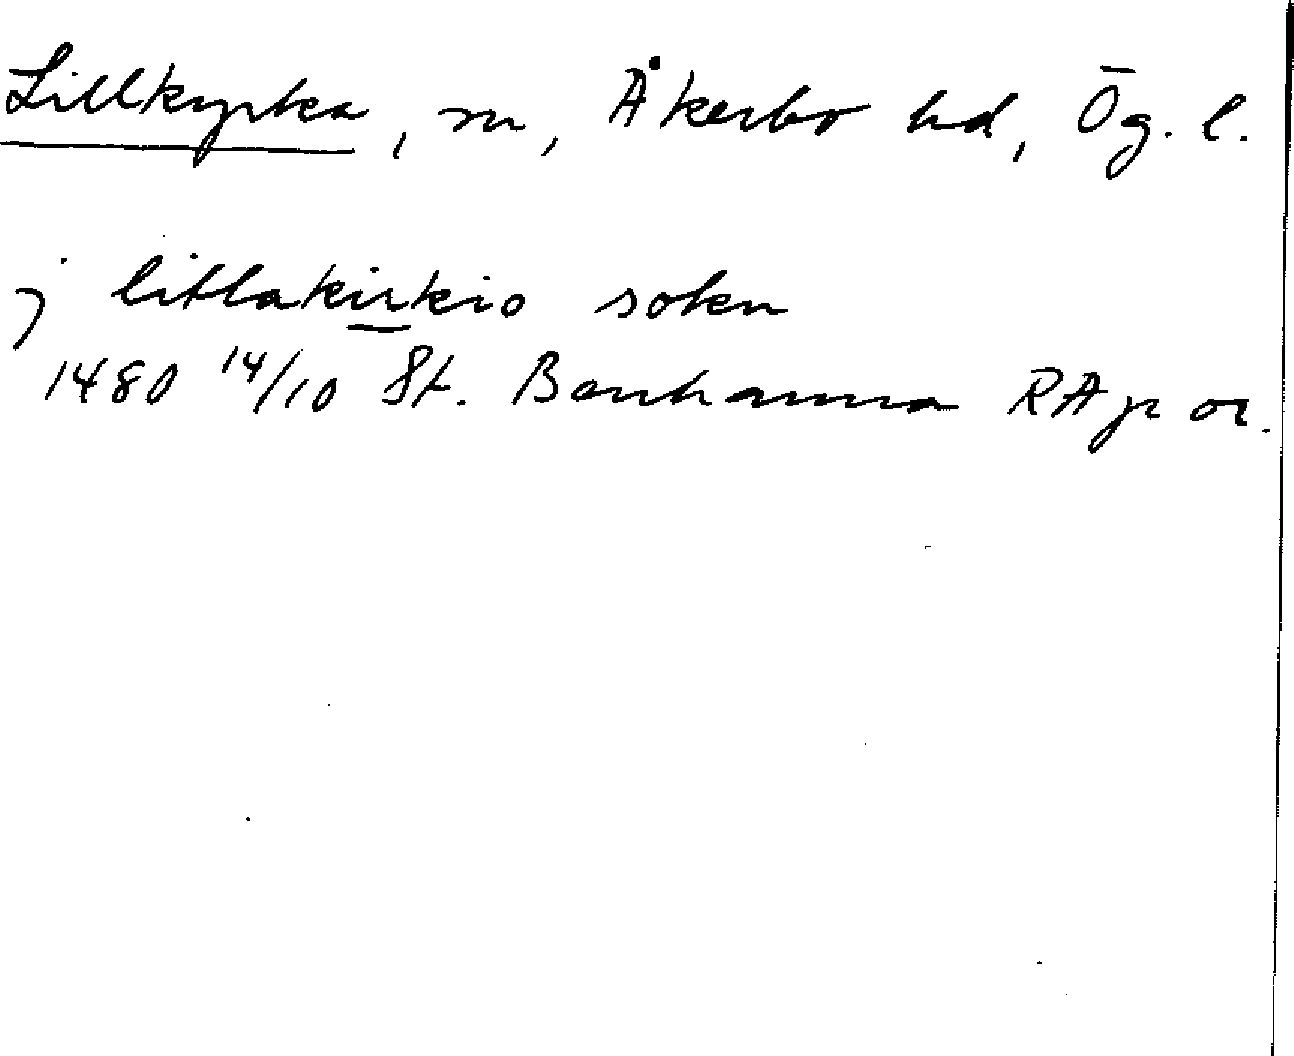 Lillkyrka, sn, Åkerbo hd, Ög. l.
j litlakirkio sokn
1480 14/10 St. Benhamra RAp or.